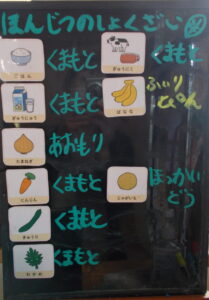 ほんじつのしょくざい
ごはん
くまもと
ぎゅうにく
くまもと
ぎゅうにゅう
くまもと
ばなな
ふぃり
ぴん
たまねぎ
あおもり
にんじん
くまもと
じゃがいも
ほっかい
どう
きゅうり
くまもと
わかめ
くまもと